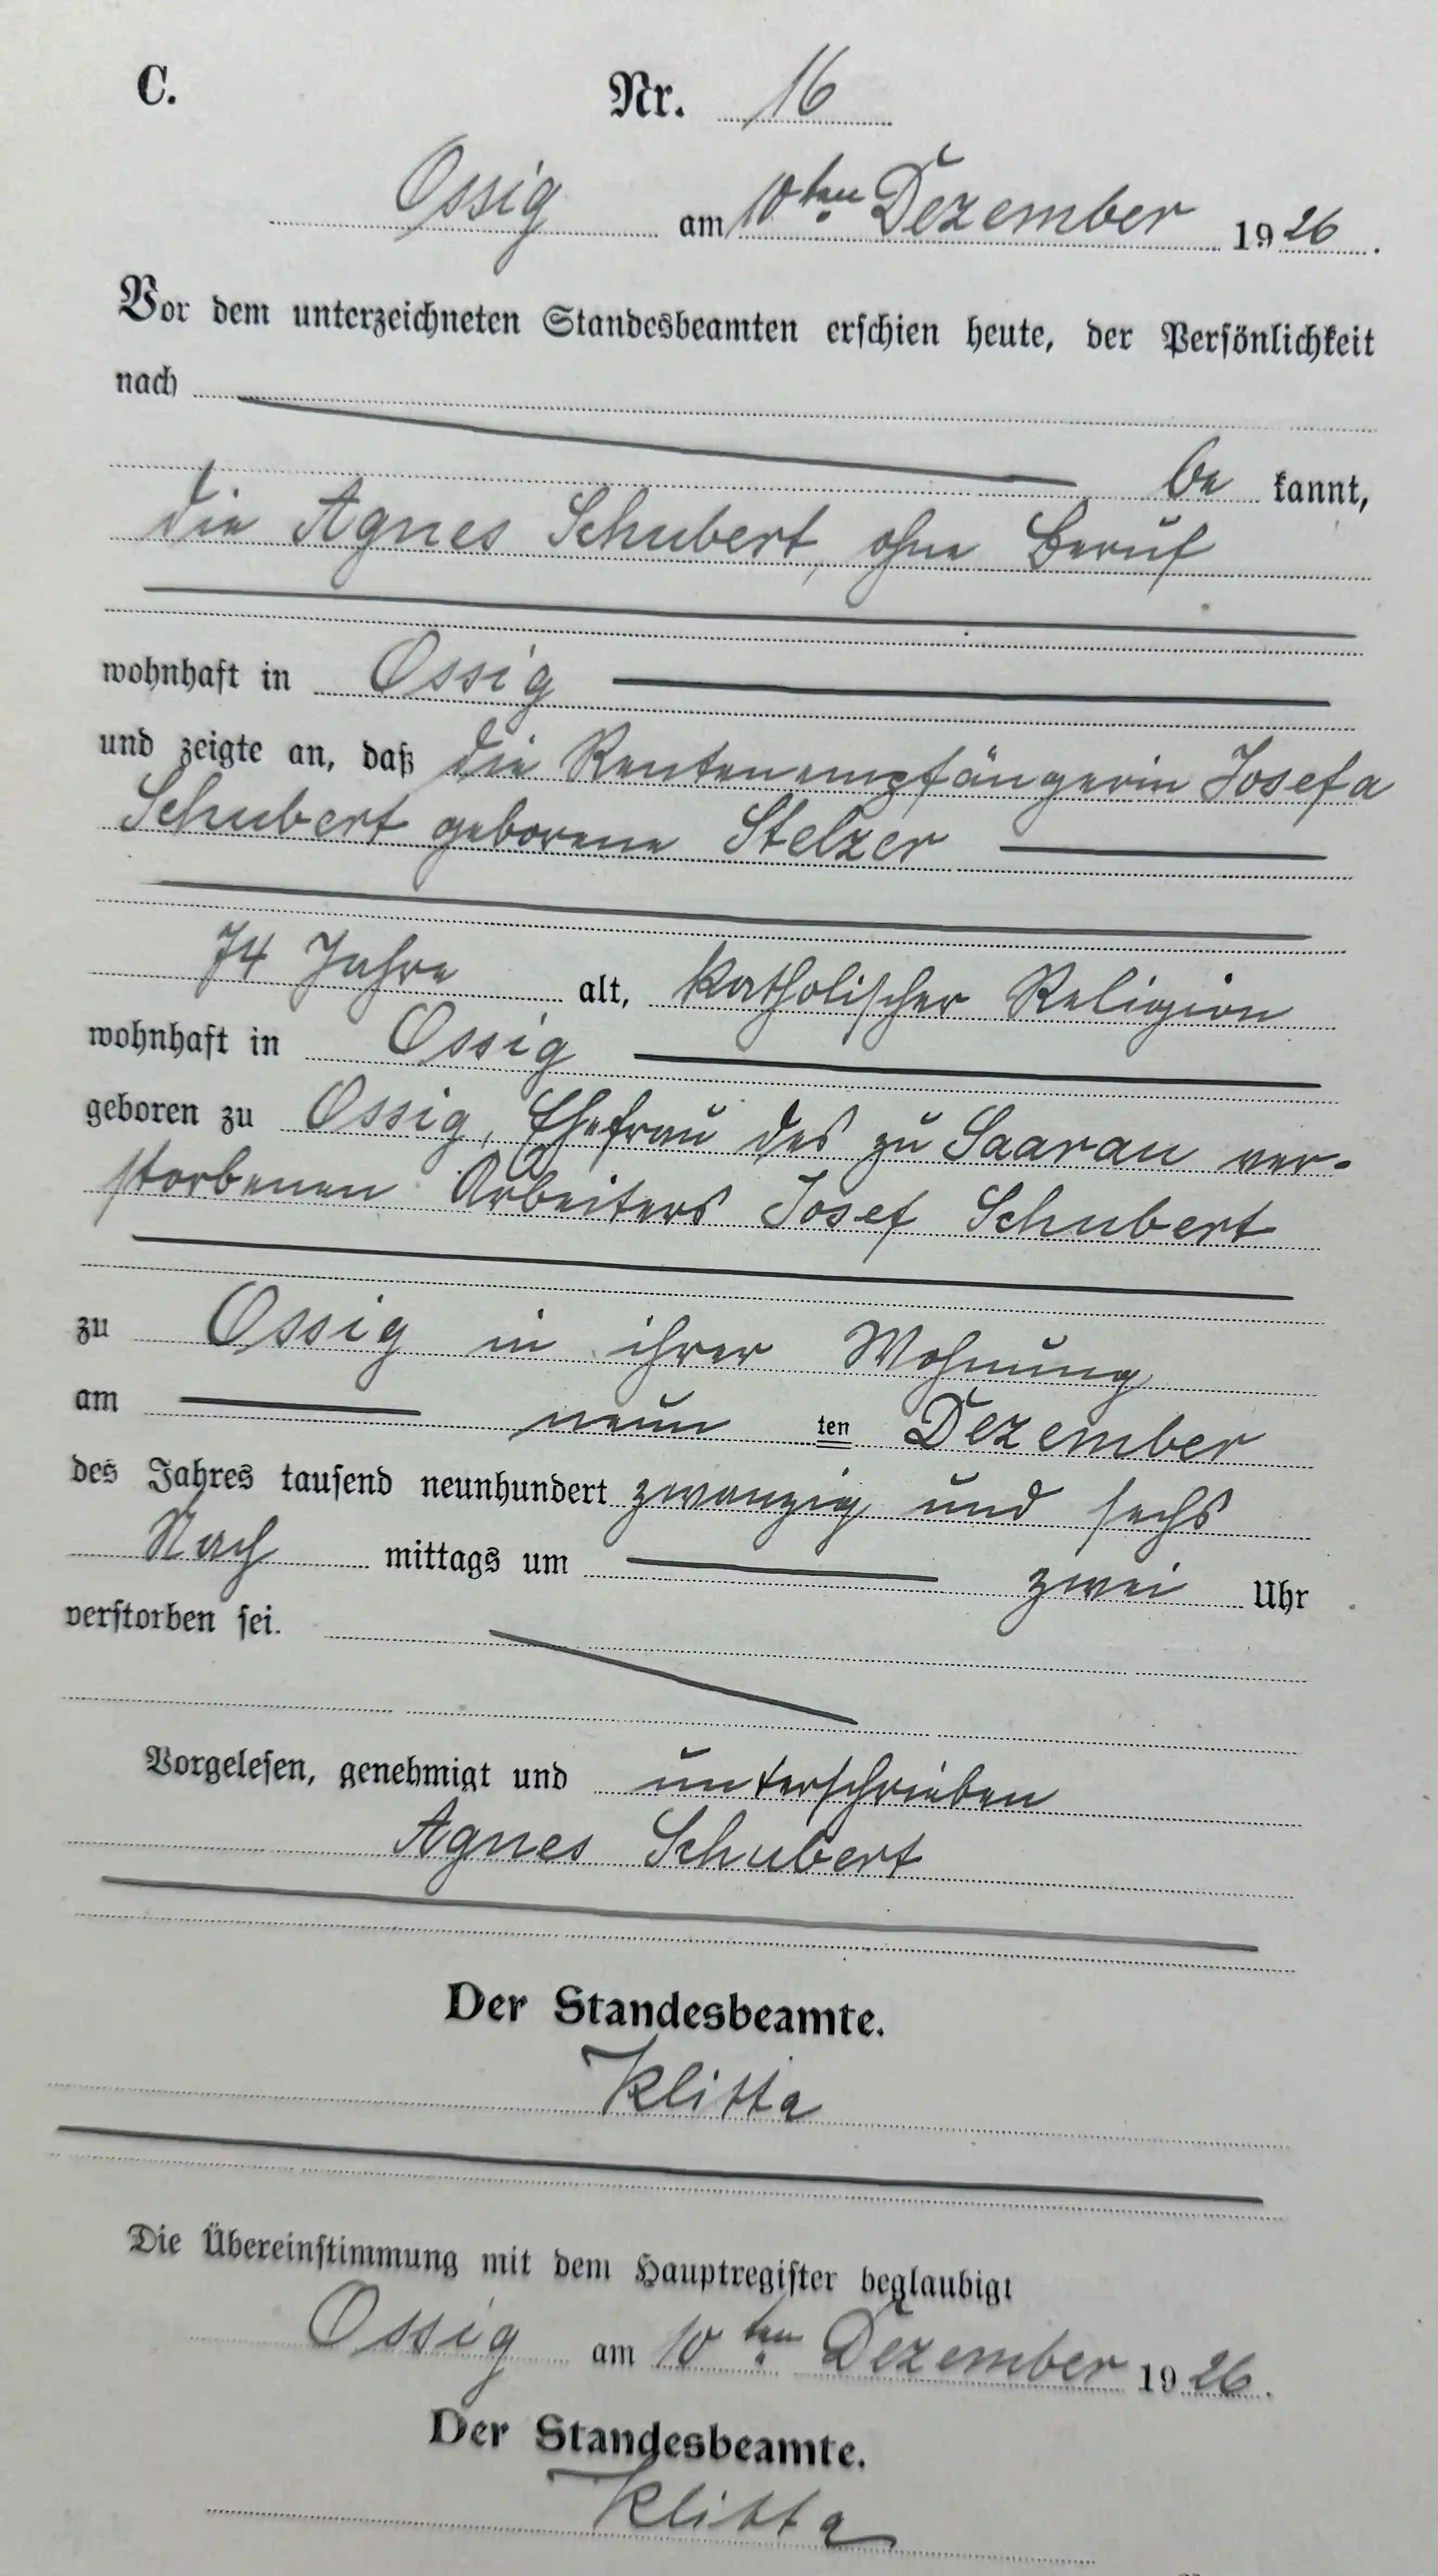 C. Nr. 16
Ossig am 10ten Dezember 1926.
Vor dem unterzeichneten Standesbeamten erschien heute, der Persönlichkeit
nach
be kannt,
die Agnes Schubert, ohne Beruf
wohnhaft in Ossig
und zeigte an, daß die Rentenempfängerin Josefa
Schubert geborene Stelzer
74 Jahre alt, katholischer Religion
wohnhaft in Ossig
geboren zu Ossig, Ehefrau des zu Saarau ver-
storbenen Arbeiters Josef Schubert
zu Ossig in ihrer Wohnung
am neun ten Dezember
des Jahres tausend neunhundert zwanzig und sechs
Nach mittags um zwei Uhr
verstorben sei.
Vorgelesen, genehmigt und unterschrieben
Agnes Schubert
Der Standesbeamte.
Klitta
Die Übereinstimmung mit dem Hauptregister beglaubigt
Ossig am 10ten Dezember 1926.
Der Standesbeamte.
Klitta